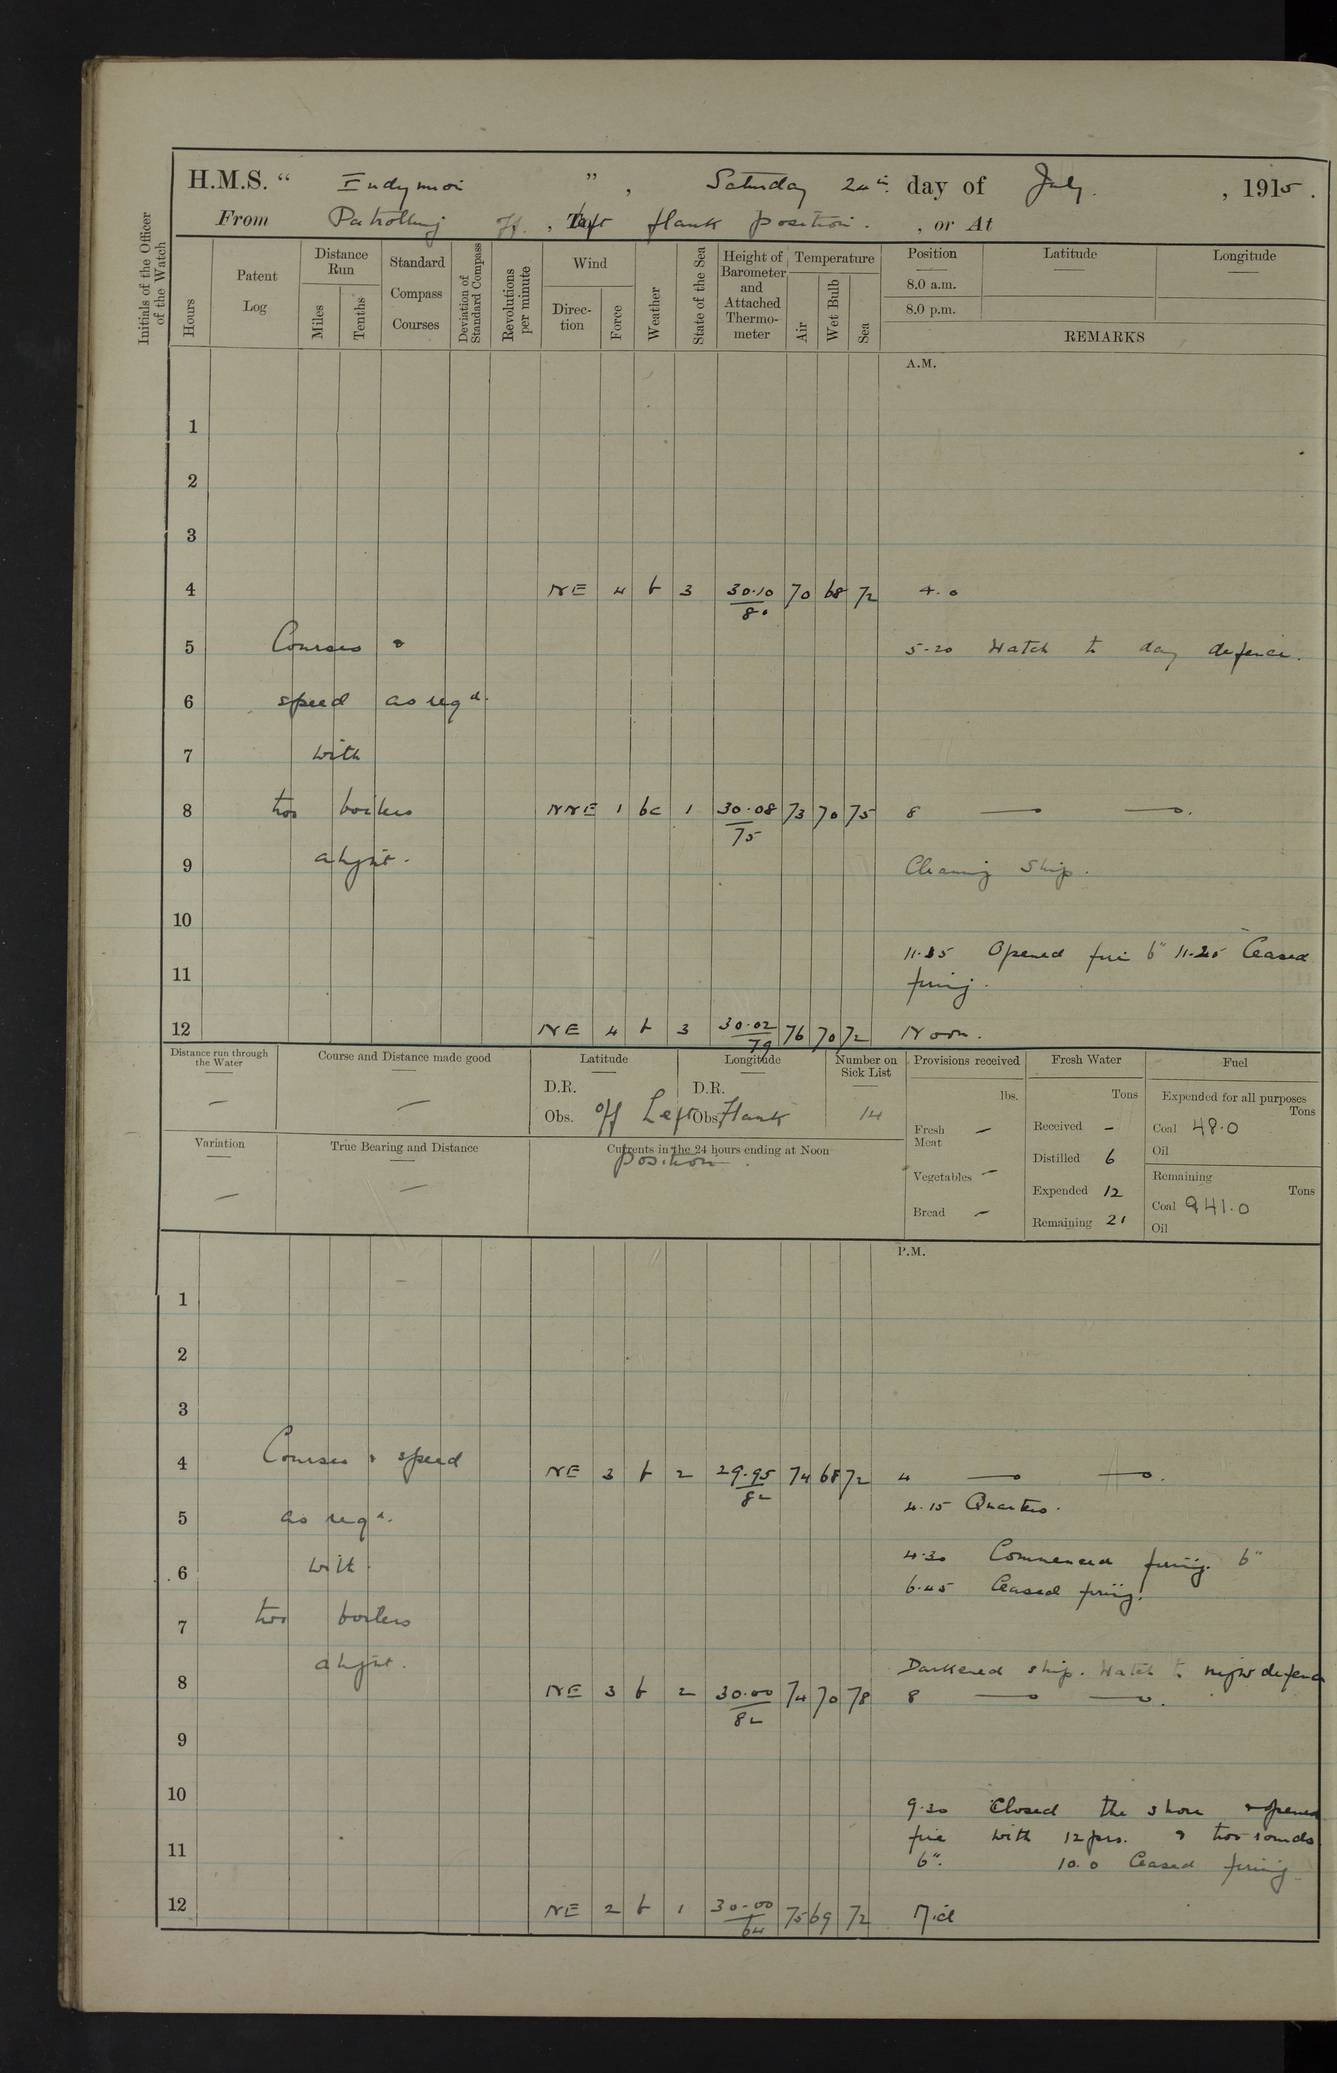 H.M.S. " Endymion ", Saturday 24th day of July, 1915.
From Patrolling off, To left flank position. , or At
Initials of the Officer of the Watch
Hours
Patent Log
Distance Run
Miles
Tenths
Standard Compass Courses
Deviation of Standard Compass
Revolutions per minute
Wind
Direction
Force
Weather
State of the Sea
Height of Barometer and Attached Thermometer
Temperature
Air
Wet Bulb
Sea
Position
8.0 a.m.
8.0 p.m.
Latitude
Longitude
REMARKS
A.M.
1
2
3
4 NE 4 b 3 30.10/80 70 68 72 4.0
5 Courses & 5-20 Watch to day defence.
6 speed as reqd.
7 with
8 two boilers NNE 1 bc 1 30.08/75 73 70 75 8 — —.
9 alight. Cleaning Ship.
10
11.15 Opened fire 6" 11.25 Ceased
11 firing.
12 NE 4 b 3 30.02/79 76 70 72 Noon.
Distance run through the Water —
Course and Distance made good —
Latitude D.R. Obs.
Longitude D.R. Obs.
off Left Flank
position.
Number on Sick List 14
Variation —
True Bearing and Distance —
Currents in the 24 hours ending at Noon
Provisions received
lbs.
Fresh Meat —
Vegetables —
Bread —
Fresh Water
Tons
Received -
Distilled 6
Expended 12
Remaining 21
Fuel
Expended for all purposes
Tons
Coal 48.0
Oil
Remaining
Tons
Coal 941.0
Oil
P.M.
1
2
3
4 Courses & speed NE 3 b 2 29.95/82 74 68 72 4 — —.
4.15 Quarters.
5 as reqd.
4.30 Commenced firing. 6"
6 with.
6.45 Ceased firing.
7 two boilers
alight. Darkened ship. Watch to night defence
8 NE 3 b 2 30.00/82 74 70 78 8 — —.
9
10 9.30 Closed the shore & opened
fire with 12 prs. & two rounds
11 6". 10.0 Ceased firing
12 NE 2 b 1 30.00/64 75 69 72 Mid